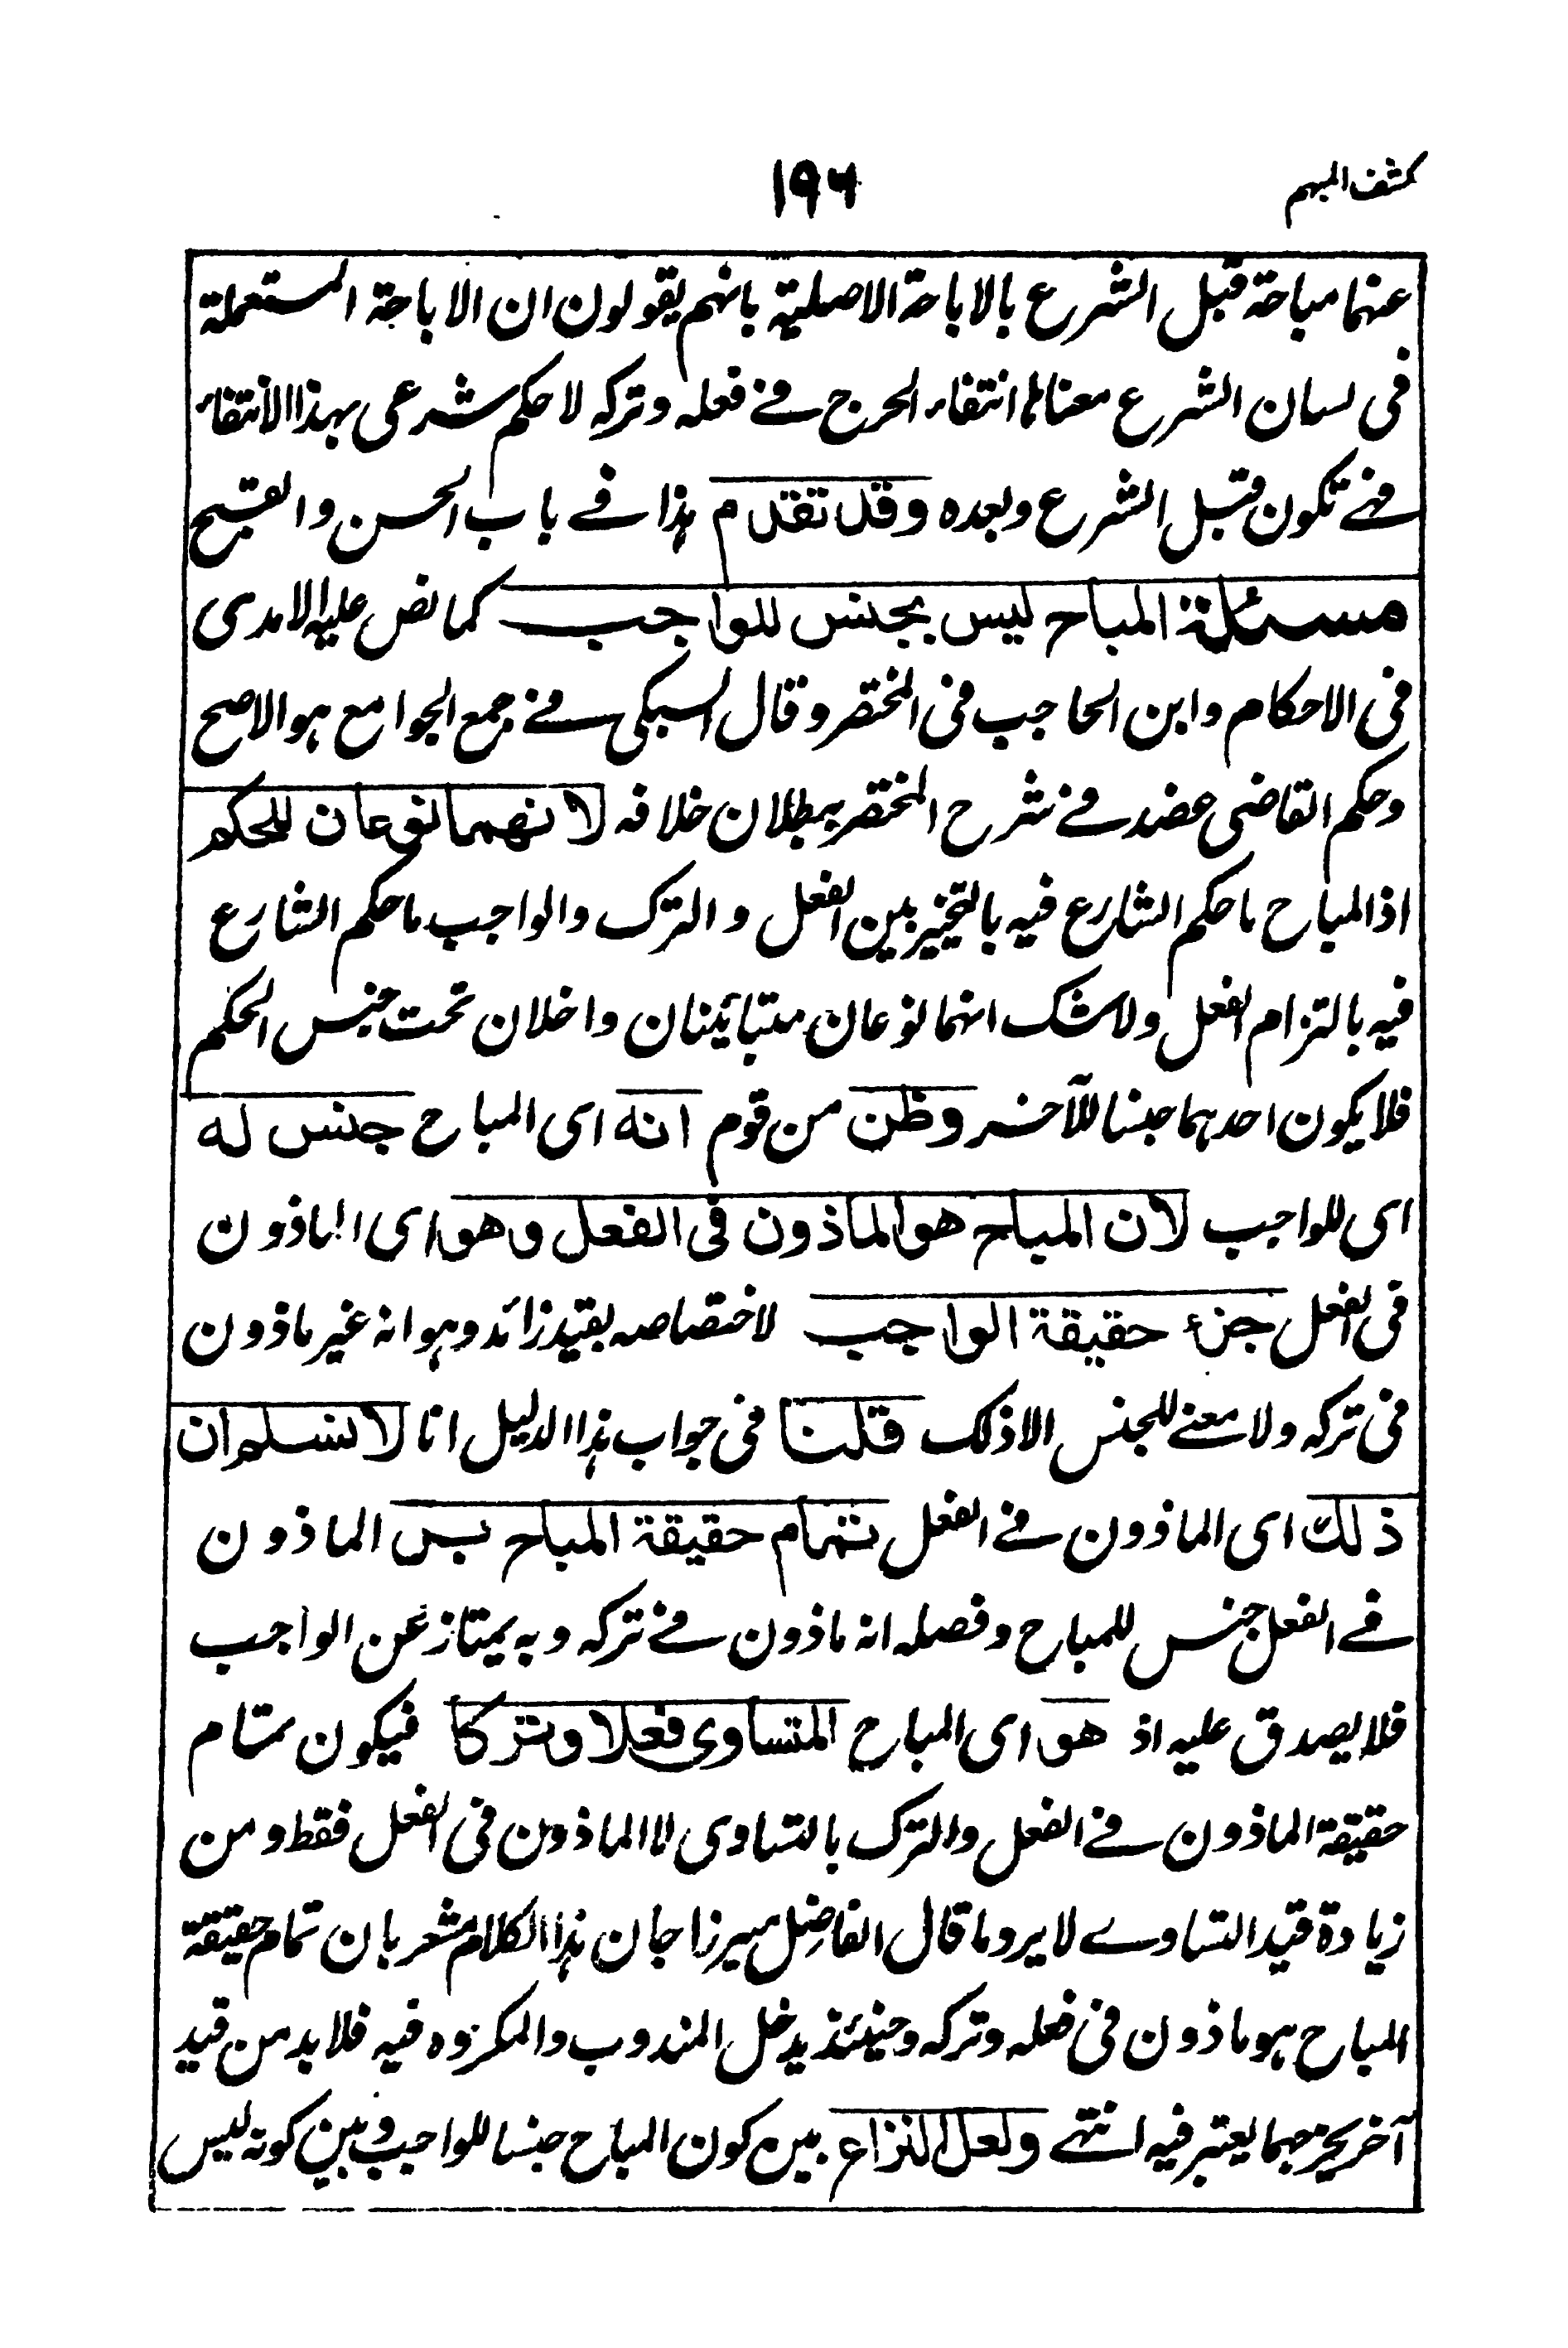 كشف المبهم
١٩٦
عنها مباحة قبل الشرع بالاباحة الاصلية بانهم يقولون ان الاباحة المستعملة
فى لسان الشرع معناها انتفاء الحرج فے فعله وتركه لا حكم شرعى بهذا الانتفاء
فهے تكون قبل الشرع وبعده وقد تقدم هذا فے باب الحسن والقبح
مسئلة المباح ليس بجنس للواجب كما نص عليه الامدى
فى الاحكام وابن الحاجب فى المختصر وقال السبكى فے جمع الجوامع هو الاصح
وحكم القاضى عضد فے شرح المختصر ببطلان خلافه لانهما نوعان للحكم
اذ المباح ما حكم الشارع فيه بالتخيير بين الفعل و الترك والواجب ما حكم الشارع
فيه بالتزام الفعل ولا شك انهما نوعان متبائنان داخلان تحت جنس الحكم
فلا يكون احدهما جنسا للآخر وظن من قوم انه اى المباح جنس له
اى للواجب لان المباح هو الماذون فى الفعل وهو اى الماذون
فى الفعل جزء حقيقة الواجب لاختصاصه بقيد زائد وهو انه غير ماذون
فى تركه ولا معنے للجنس الا ذلك قلنا فى جواب هذا الدليل انا لا نسلم ان
ذلك اى الماذون فے الفعل تمام حقيقة المباح بس الماذون
فے الفعل جنس للمباح وفصله انه ماذون فے تركه وبه يمتاز عن الواجب
فلا يصدق عليه اذ هو اى المباح المتساوى فعلا وتركا فيكون تمام
حقيقة الماذون فے الفعل والترك بالتساوى لا الماذون فى الفعل فقط ومن
زيادة قيد التساوے لا يرد ما قال الفاضل ميرزا جان هذا الكلام مشعر بان تمام حقيقة
المباح هو ماذون فى فعله وتركه وحينئذ يدخل المندوب والمكروه فيه فلا بد من قيد
آخر يخرجهما يعتبر فيه انتهے ولعل النزاع بين كون المباح جنسا للواجب وبين كونه ليس